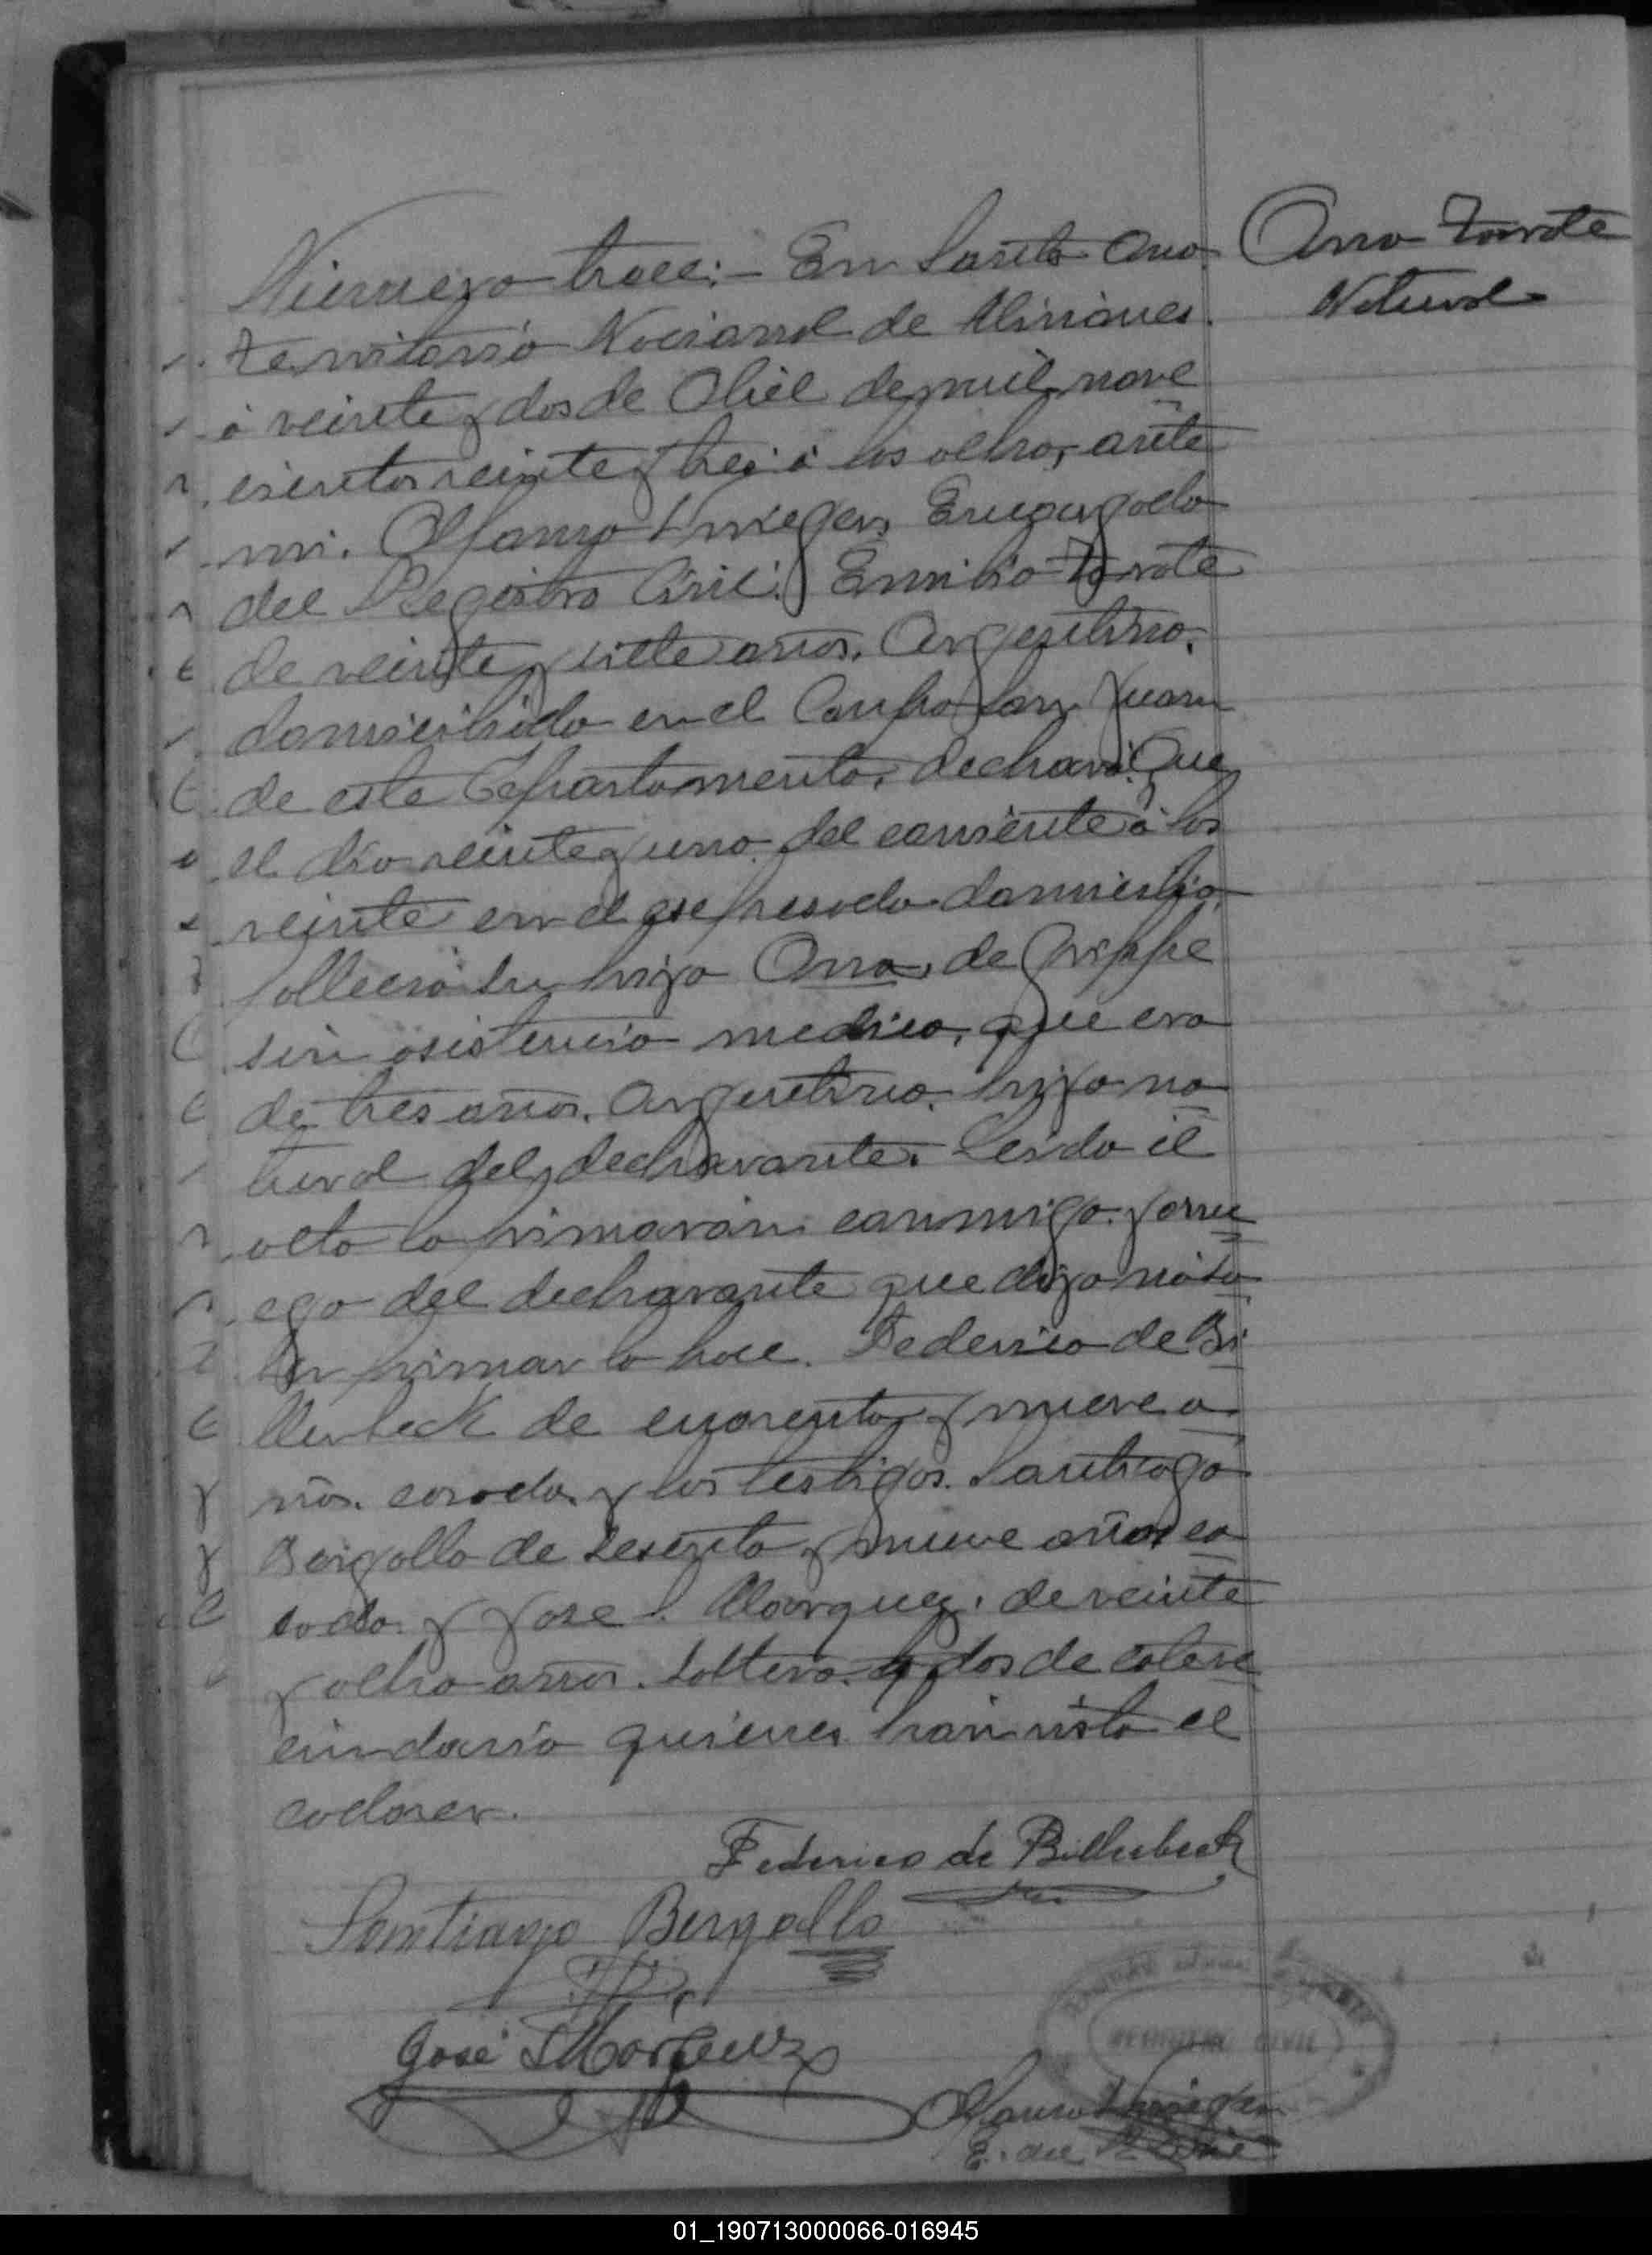 Número trece:- En Santa Ana
Ana Zarate
Natural
Territorio Nacional de Misiones
á veinte y dos de Abril de mil nove
cientos veinte y tres á las ocho, ante
mi. Alfonso Encargado
del Registro Civil: Emilio Zarate
de veinte y siete años. Argentino.
domiciliado en el Campo San Juan
de este Departamento, declaró: Que
el dia veinte y uno del corriente á las
veinte en el expresado domicilio
fallecio su hija Ana, de Grippe
sin asistencia medica, que era
de tres años. Argentina. hija na
tural del declarante. Leida el
acta la firmarán conmigo. y a rru
ego del declarante que dijo no sa
ber firmar lo hace. Federico de Bi
llerbeck de cuarenta y nueve a
ños. casado. y los testigos. Santiago
Bergallo de sesenta y nueve años ca
sado. y Jose . Marquez. de veinte
y ocho años. soltero. todos de este ve
cindario quienes han visto el
cadaver.
Federico de Billerbeck
Santiago Bergallo
José Marquez
REGISTRO CIVIL
Alfonso
E. del R. Civil
01_190713000066-016945